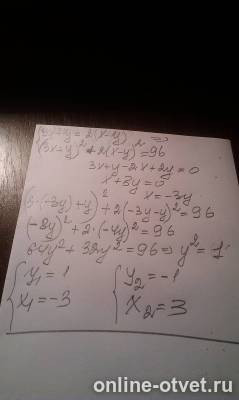 3x+y = 2(x-y)
(3x+y)² + 2(x-y)² = 96
3x+y-2x+2y=0
x+3y=0
x=-3y
(3·(-3y)+y)² + 2(-3y-y)² = 96
(-8y)² + 2·(-4y)² = 96
64y² + 32y² = 96 ⇒ y² = 1
{ y₁ = 1 { y₂ = -1
x₁ = -3 x₂ = 3
online-otvet.ru